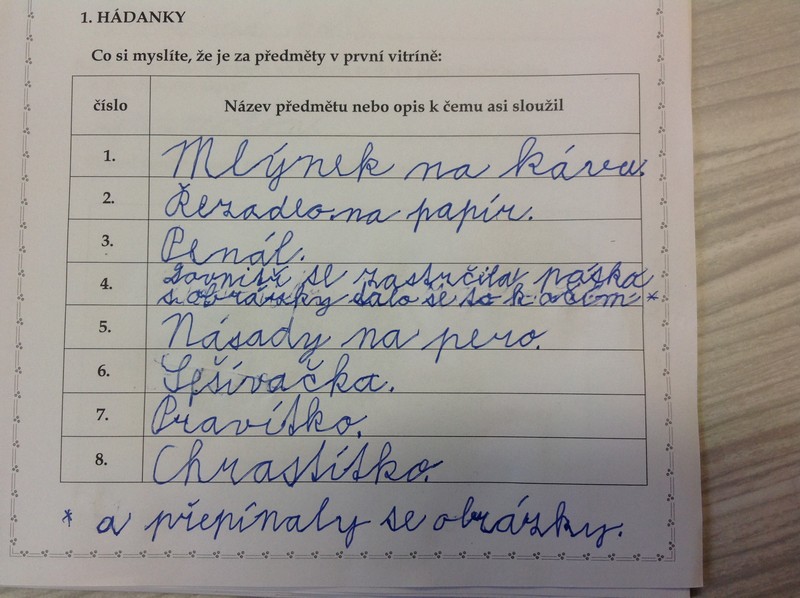 1. HÁDANKY
Co si myslíte, že je za předměty v první vitríně:
číslo Název předmětu nebo opis k čemu asi sloužil
1. Mlýnek na káva.
2. Řezadlo na papír.
3. Penál.
4. Dovnitř se zastrčila páska
s obrázky dalo se to k očím *
5. Násady na pero.
6. Sešívačka.
7. Pravítko.
8. Chrastítko.
* a přepínaly se obrázky.